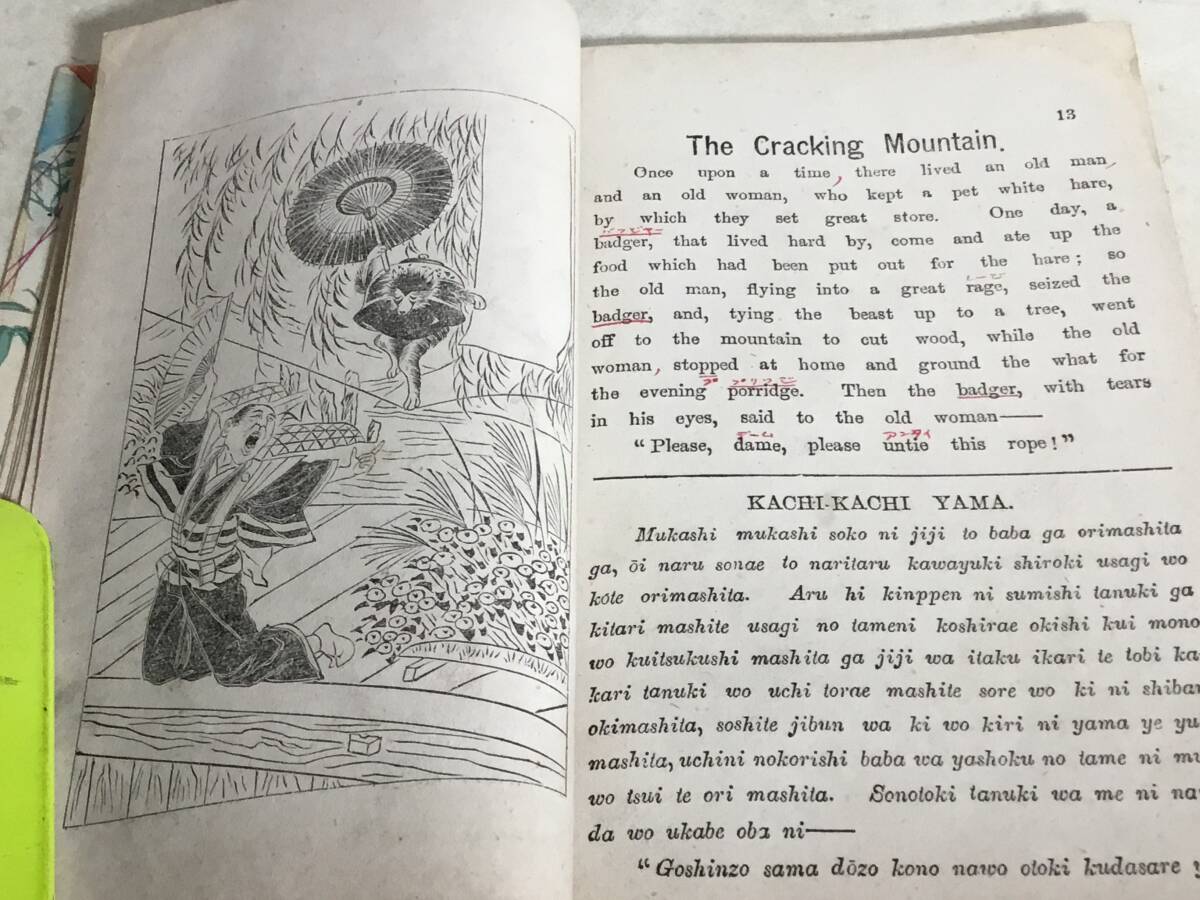 13
The Cracking Mountain.
Once upon a time, there lived an old man,
and an old woman, who kept a pet white hare,
by which they set great store. One day, a
バフジャー
badger, that lived hard by, come and ate up the
food which had been put out for the hare; so
レージ
the old man, flying into a great rage, seized the
badger, and, tying the beast up to a tree, went
off to the mountain to cut wood, while the old
woman, stopped at home and ground the what for
the evening porridge. Then the badger, with tears
in his eyes, said to the old woman——
デーム アンタイ
“Please, dame, please untie this rope!”
KACHI-KACHI YAMA.
Mukashi mukashi soko ni jiji to baba ga orimashita
ga, ōi naru sonae to naritaru kawayuki shiroki usagi wo
kote orimashita. Aru hi kinppen ni sumishi tanuki ga
kitari mashite usagi no tameni koshirae okishi kui mono
wo kuitsukushi mashita ga jiji wa itaku ikari te tobi ka-
kari tanuki wo uchi torae mashite sore wo ki ni shibar
okimashita, soshite jibun wa ki wo kiri ni yama ye yu
mashita, uchini nokorishi baba wa yashoku no tame ni mu
wo tsui te ori mashita. Sonotoki tanuki wa me ni na
da wo ukabe oba ni——
“Goshinzo sama dōzo kono nawo otoki kudasare y